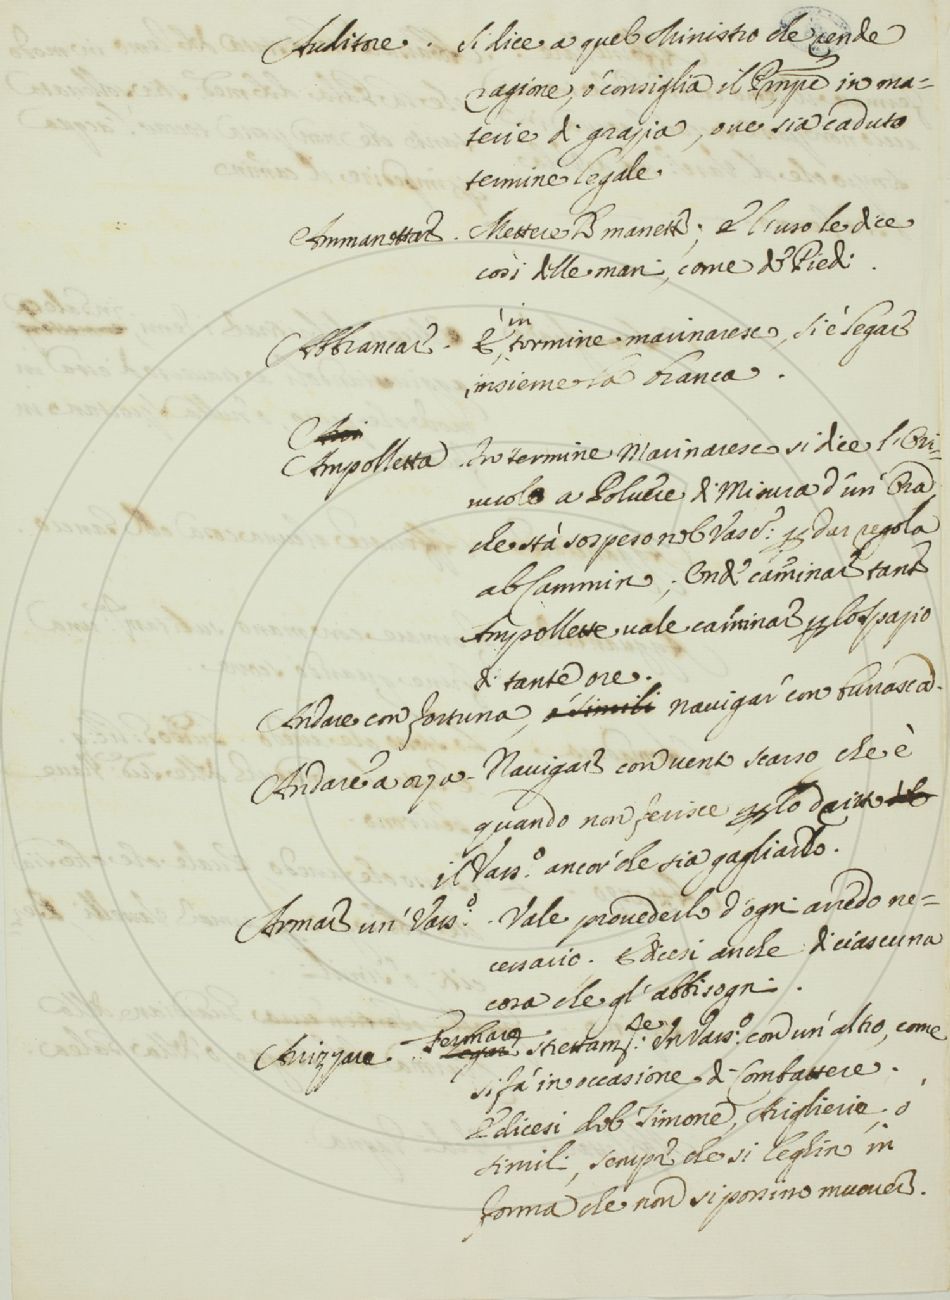 Auditore. Si dice a quel Ministro che rende
ragione, ó consiglia il Prnpe in ma=
terie di grazia, ove sia caduto
termine legale.
Ammanettare. Mettere le manette; e l'uso le dice
così delle mani, come de Piedi.
Abbrancare. È in termine marinaresc, si è legare
insieme la branca.
Ampolletta In termine Marinaresc si dice l'Ori=
uolo a Polvere di Misura d'un' Ora
che stà sospeso nel Vasc.: p dar regola
al Cammin; Onde caminar tante
Ampollette vale caminar p lo spazio
di tante ore.
Andare con fortuna, o simili navigar con burrasca.
Andare a orza. Navigare con vento scarso che è
quando non ferisce p lo dritto
il Vass.o ancor che sia gagliardo.
Armare un' Vass.o. Vale provederlo d'ogni arredo ne=
cessario. E dicesi anche di ciascuna
cosa che gl' abbisogni.
Arizzare. Fermare Legar strettam.te Un Vass.o con un' altro, come
si fà in occasione di Combattere.
E dicesi del Timone, Artiglierie, ó
simili, sempre che si leghin in
forma che non si possino muovere.